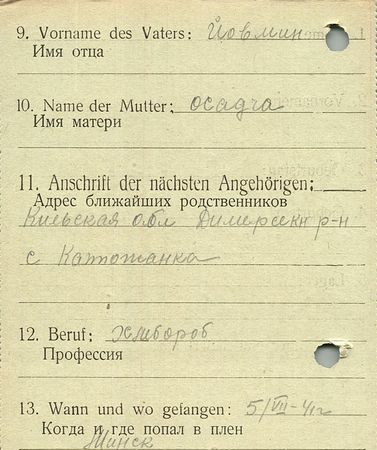 9. Vorname des Vaters: Йовмин
Имя отца
10. Name der Mutter: осадча
Имя матери
11. Anschrift der nächsten Angehörigen:
Адрес ближайших родственников
Киевская обл Димерскн р-н
с Катюжанка
12. Beruf: Хлибороб
Профессия
13. Wann und wo gefangen: 5/VII-41г
Когда и где попал в плен
Минск